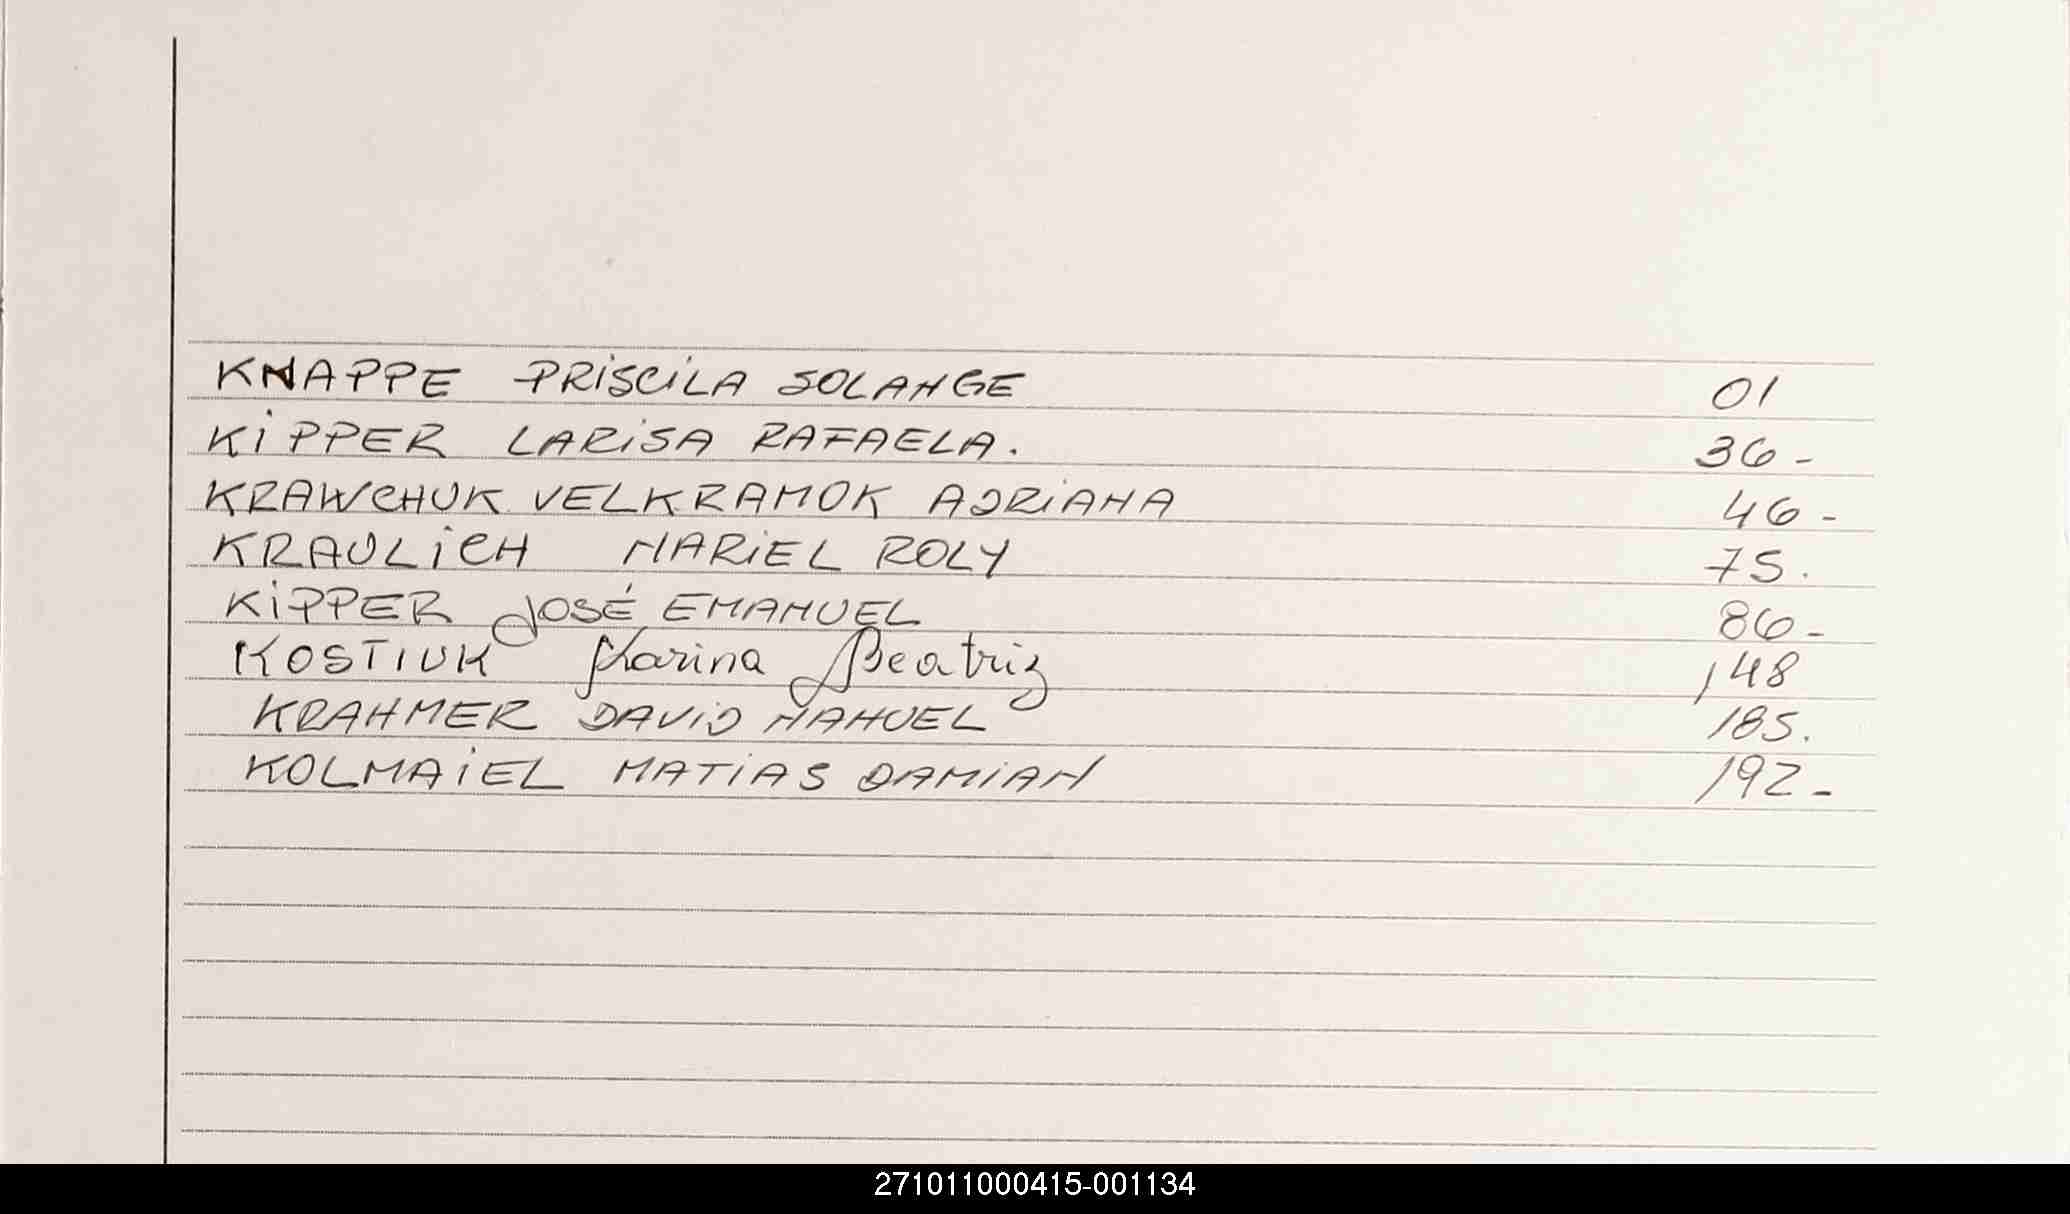 KNAPPE PRISCILA SOLANGE 01
KIPPER LARISA RAFAELA. 36-
KRAWCHUK VELKRAMOK ADRIANA 46-
KRAULICH MARIEL ROLY 75.
KIPPER JOSÉ EMANUEL 86-
KOSTIUK Karina Beatriz 148
KRAHMER DAVID MANUEL 185.
KOLMAIEL MATIAS DAMIAN 192-
271011000415-001134